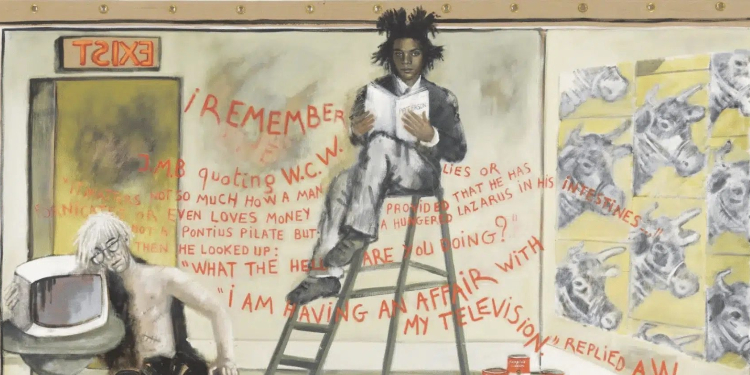 EXIST
i REMEMBER
J.M.B quoting W.C.W.
MATTERS NOT SO MUCH HOW A MAN LIES OR
FORNICATES OR EVEN LOVES MONEY PROVIDED THAT HE HAS
NOT A PONTIUS PILATE BUT A HUNGERED LAZARUS IN HIS INTESTINES_"
THEN HE LOOKED UP:
"WHAT THE HELL ARE YOU DOING?"
"i AM HAVING AN AFFAIR WITH
MY TELEVISION" REPLIED A.W.